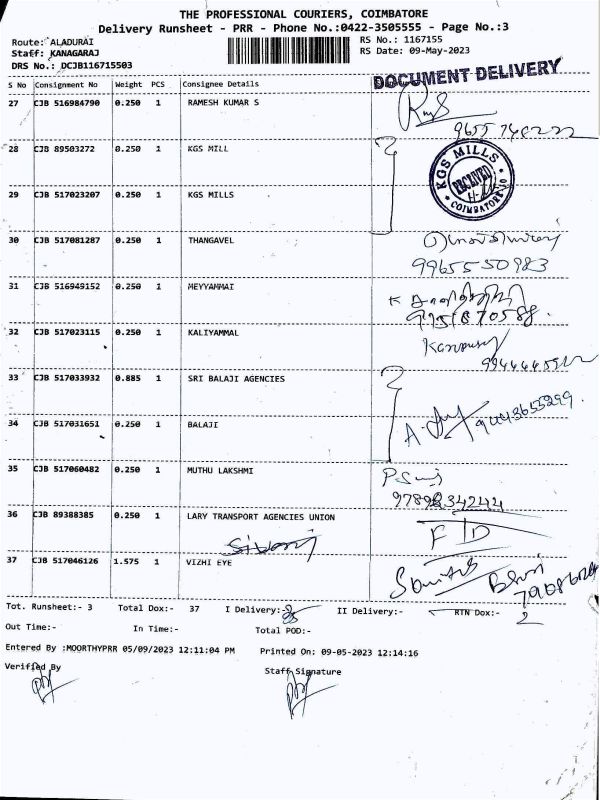 THE PROFESSIONAL COURIERS, COIMBATORE
Delivery Runsheet - PRR - Phone No.:0422-3505555 - Page No.:3
Route: ALADURAI RS No.: 1167155
Staff: KANAGARAJ RS Date: 09-May-2023
DRS No.: DCJB116715503
DOCUMENT DELIVERY
S No Consignment No Weight PCS Consignee Details
27 CJB 516984790 0.250 1 RAMESH KUMAR S
28 CJB 89503272 0.250 1 KGS MILL
KGS MILLS RECEIVED COIMBATORE
29 CJB 517023207 0.250 1 KGS MILLS
30 CJB 517081287 0.250 1 THANGAVEL
9965550983
31 CJB 516949152 0.250 1 MEYYAMMAI
32 CJB 517023115 0.250 1 KALIYAMMAL
33 CJB 517033932 0.885 1 SRI BALAJI AGENCIES
9443655299
34 CJB 517031651 0.250 1 BALAJI
35 CJB 517060482 0.250 1 MUTHU LAKSHMI
36 CJB 89388385 0.250 1 LARY TRANSPORT AGENCIES UNION
37 CJB 517046126 1.575 1 VIZHI EYE
Tot. Runsheet:- 3 Total Dox:- 37 I Delivery:- II Delivery:- RTN Dox:- 2
Out Time:- In Time:- Total POD:-
Entered By :MOORTHYPRR 05/09/2023 12:11:04 PM Printed On: 09-05-2023 12:14:16
Verified By Staff Signature